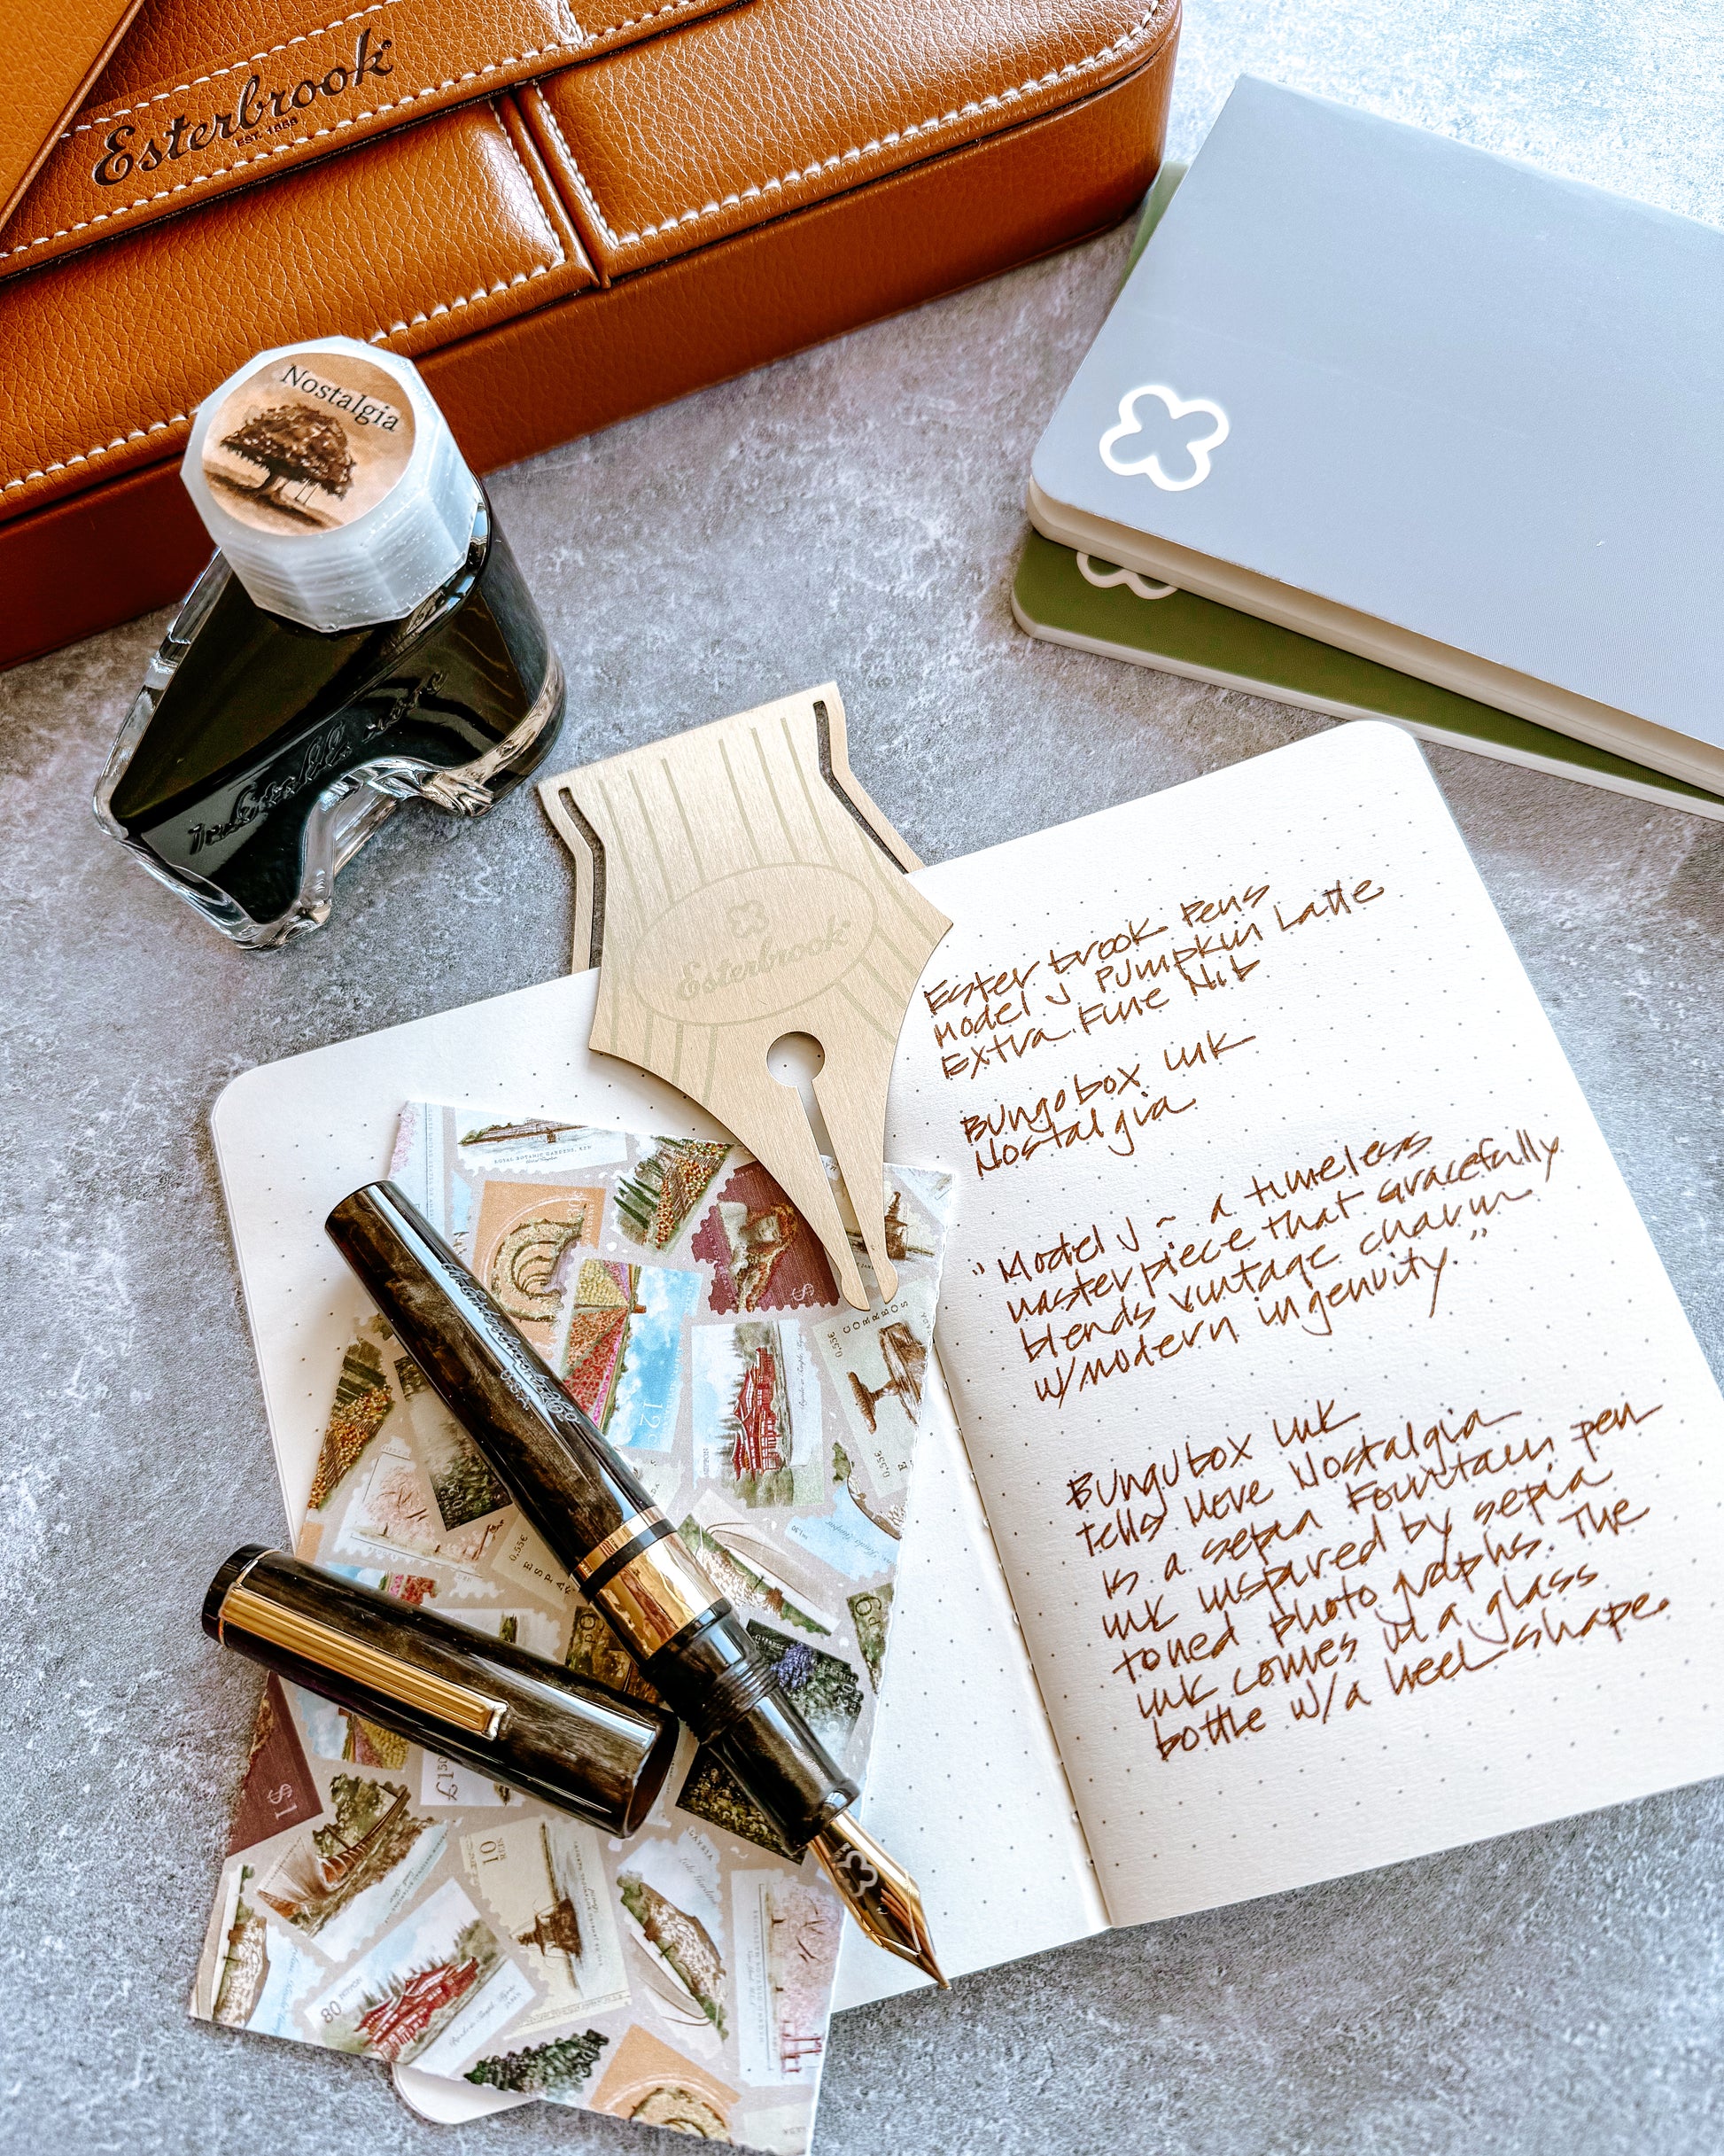 Esterbrook
EST. 1858
Nostalgia
Tells more
Esterbrook
Esterbrook Pens
Model J Pumpkin Latte
Extra Fine Nib
Bungobox ink
Nostalgia
"Model J ~ a timeless
masterpiece that gracefully
blends vintage charm
w/modern ingenuity."
Bungubox ink
tells more Nostalgia
is a sepia fountain pen
ink inspired by sepia
toned photographs. The
ink comes in a glass
bottle w/a heel shape.
ROYAL BOTANIC GARDENS, KEW
CORREOS
0,55€
12c
0,55€
ESPAÑ
U.S.A.
£150
1$
10
80